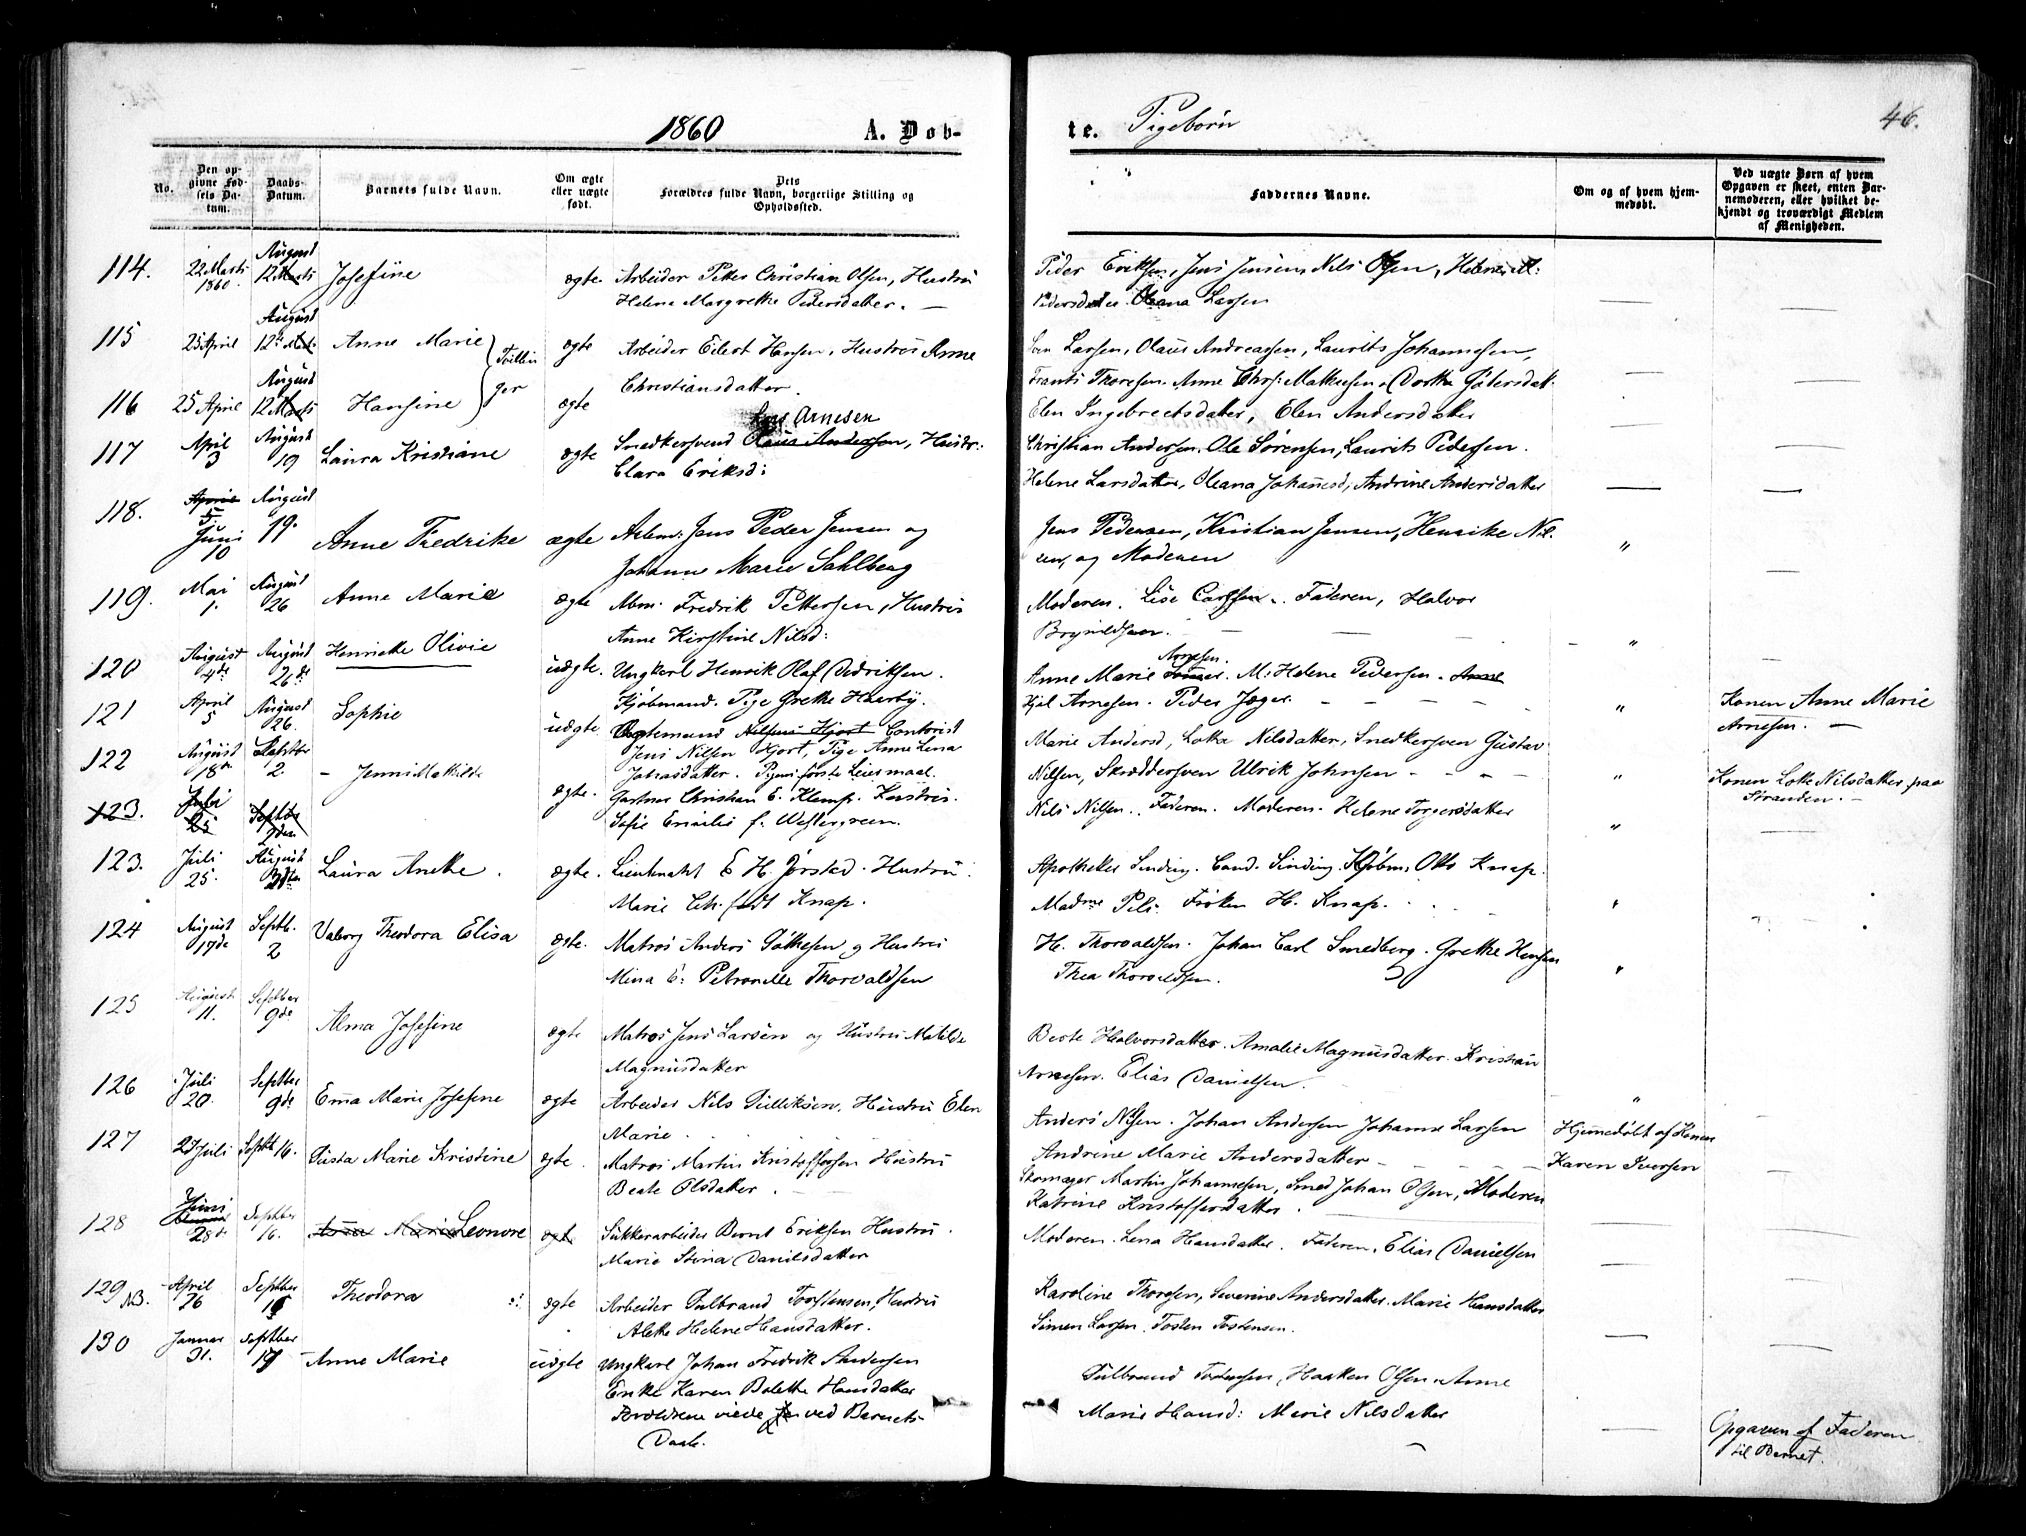 1860 A. Døb-
te. Pigebørn
46.
No.
Den opgivne Fødsels Datum.
Daabs-Datum.
Barnets fulde Navn.
Om ægte eller uægte født.
Dets Forældres fulde Navn, borgerlige Stilling og Opholdssted.
Faddernes Navne.
Om og af hvem hjemmedøbt.
Ved uægte Børn af hvem Opgaven er skeet, enten Barnemoderen, eller hvilket bekjendt og troværdigt Medlem af Menigheden.
114. 22 Marts 1860. August 12 Marts Josefine ægte Arbeider Petter Christian Olsen, Hustru
Helene Margrethe Pedersdatter. —
Peder Eriksen, Jens Jensen, Nils Olsen, Helene M:
Pedersdatter. Oleana Larsen
115 25 April August 12te Anne Marie } Tvillinger ægte Arbeider Eilert Hansen, Hustru Anne
Christiansdatter.
Larsen, Olaus Andreassen, Laurits Johannesen,
116 25 April August 12 Marts Hansine ægte
Frants Thoresen. Anne Chrs: Mathisen. Dorthe
Elen Ingebrectsdatter, Elen Andersdatter
117 April 3 August 19 Laura Kristiane ægte Snedkersvend Olaus Andersen, Hustr:
Arnesen
Clara Eriksd:
Christian Andersen. Ole Sørensen, Laurits Pedersen.
Helene Larsdatter, Oleana Johannesd, Andrine Andersdatter
118. April 5 Juni 10 August 19. Anne Fredrike ægte Arbm: Jens Peder Jensen og
Johanne Marie Sahlberg
Jens Pedersen, Kristian Jensen, Henrike Nil-
sen, og Moderen "
119. Mai 1. August 26 Anne Marie ægte Abm. Fredrik Pettersen, Hustru
Anne Kirstine Nilsd:
Moderen. Lise Carlsen. Faderen, Halvor
Brynildsen. "
120 August 4de August 26de Henriette Olivie uægte. Ungkarl Henrik Olaf Didriksen.
Kjøbmand. Pige Grethe Haarby.
Arnesen.
Anne Marie M: Helene Pedersen. Anne
Kjel Arnesen. Peder Jæger. "
Konen Anne Marie
Arnesen. —
121 April 5 August 26. Sophie uægte Nilsen Hjort Contorist
Jens Nilsen Hjort, Pige Anne Lena
Jonasdatter. Pigens første Leiermaal.
Marie Andersd, Lotte Nilsdatter, Snedkersven Gustav
Nilsen, Skræddersven Ulrik Johnsen "
Konen Lotte Nilsdatter paa
Stranden. —
122 August 18de Septbr 2. Jenni Mathilde ægte. Gartner Christian E. Klemp. Hustru.
Sofie Emilie f. Westergreen.
Nils Nilsen. Faderen. Moderen. Helene Torgersdatter "
123. Juli 25 Septbr 9de
123. Juli 25. August Laura Anette. ægte. Lieutnant E H. Jørstad. Hustru
Marie Cth. født Knap.
Apotheker Sinding. Cand. Sinding. Kjøbm. Otto Knap.
Madme Pels. Frøken H. Knap.
124 August 17de Septb. 2 Valborg Theodora Elisa ægte. Matros Anders Gulliksen og Hustru
Mina E. Petronelle Thorvaldsen
H. Thorvaldsen. Johan Carl Smedberg. Grethe Hansen
Thea Thorvaldsen. "
125 August 11. Septber 9de Alma Josefine ægte Matros Jens Larsen og Hustru Matilde
Magnusdatter
Berte Halvorsdatter. Amalie Magnusdatter. Kristian
Arnesen. Elias Danielsen.
126 Juli 20. Septber 9de Emma Marie Josefine ægte Arbeider Nils Gulliksen, Hustru Elen
Marie.
Anders Nilsen. Johan Andersen Johanne Larsen
Andrine Marie Andersdatter
Hjemmedøbt af Konen
Karen Iversen
127 27 Juli Septbr 16. Gusta Marie Kristine ægte. Matros Martin Kristoffersen Hustru
Beate Olsdatter.
Skomager Martin Johannesen, Smed Johan Olsen, Moderen
Katrine Kristoffersdatter.
128 Juni 28de Septber 16. Anne Marie Leonore ægte Sukkerarbeider Bernt Eriksen Hustru.
Marie Stina Danielsdatter
Moderen. Lena Hansdatter. Faderen. Elias Danielsen
129 NB. April 26 Septber 16 Theodora ægte Arbeider Gulbrand Torstensen, Hustru
Alette Helene Hansdatter.
Karoline Thoresen, Severine Andersdatter. Marie Hansdatter
Simen Larsen. Tosten Tostensen.
130 Januar 31. Septber 19 Anne Marie uægte Ungkarl Johan Fredrik Andersen
Enke Karen Bolette Hansdatter
Forældrene viede før ved Barnets
Daab.
Gulbrand Tostensen, Haaken Olsen. Anne
Marie Hansd: Marie Nilsdatter
Opgaven af Faderen
til Barnet.